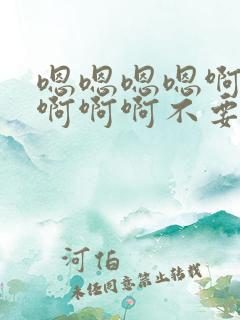 嗯嗯嗯嗯啊
啊啊啊不要
河伯
未经同意禁止转载